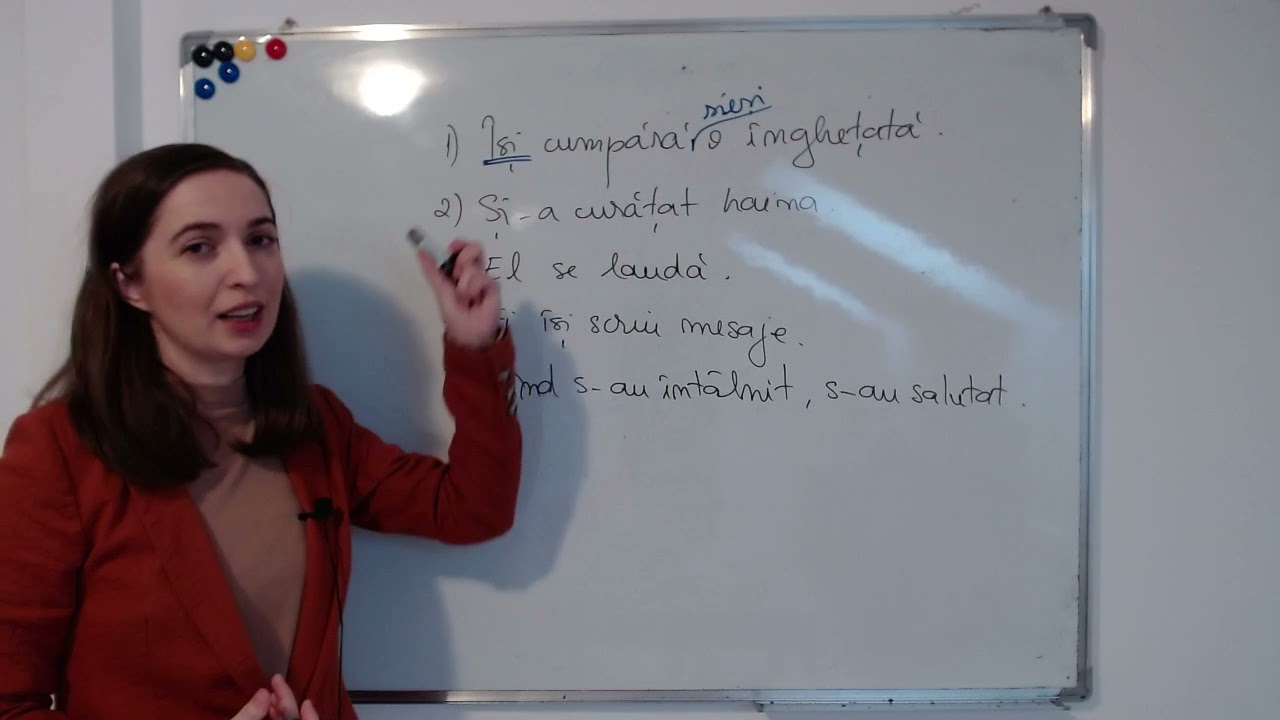 sieși
1) Își cumpără o înghețată.
2) Și-a curățat haina.
El se laudă.
își scriu mesaje.
s-au întâlnit, s-au salutat.